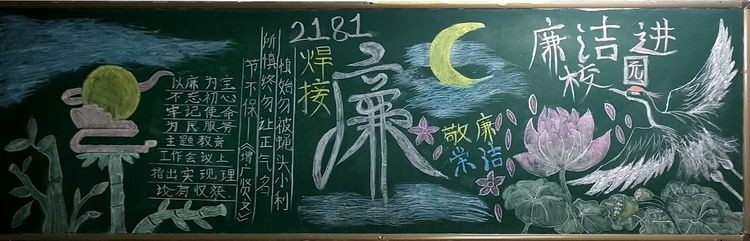 以廉为宝
不忘初心
牢记使命
为民服务
主题教育
工作会议上
指出实现理
论有收获
慎始勿被蝇头小利
所慎终勿让正气名
节不保
《增广贤文》
2181
焊接
廉
敬廉
崇洁
廉洁进
校园